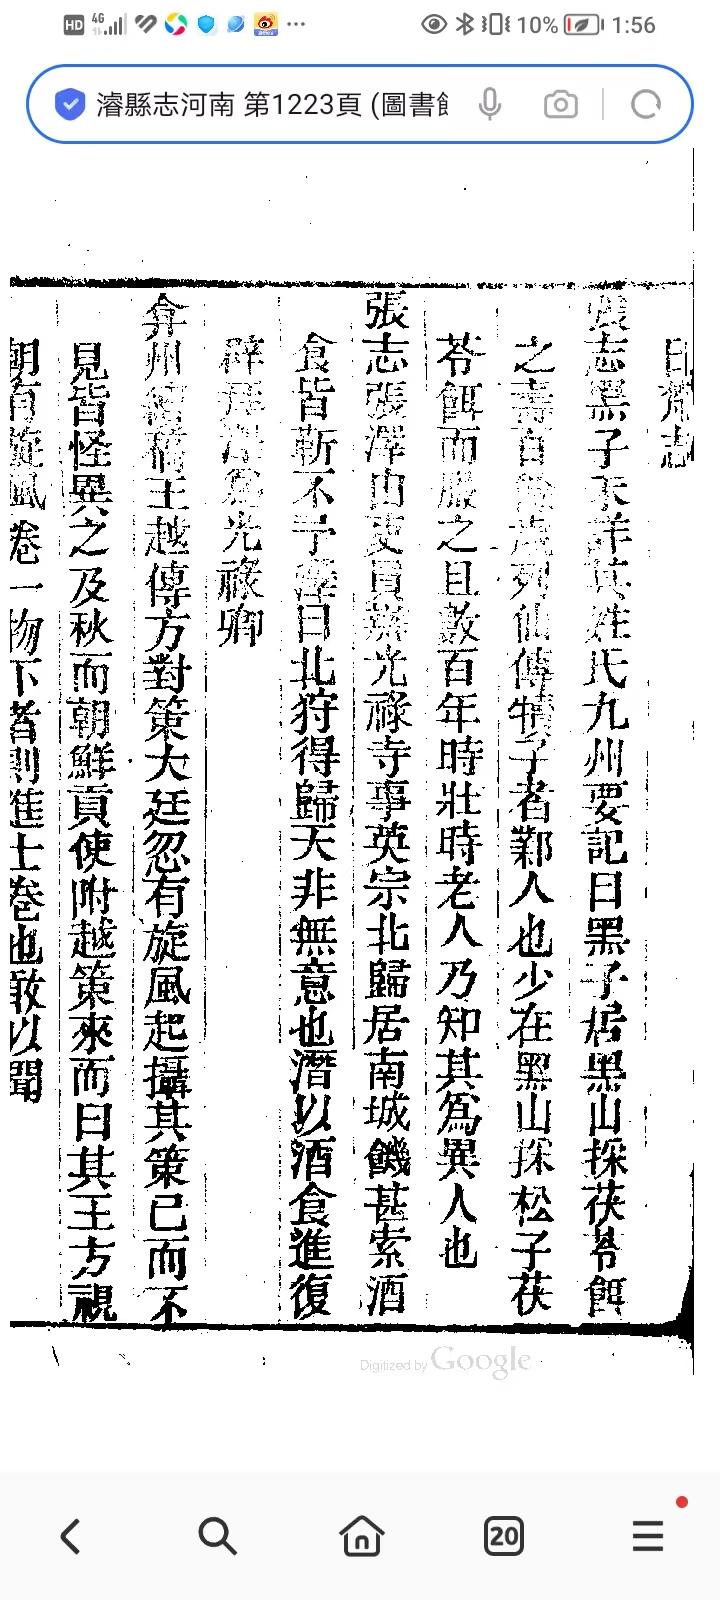 HD 4G 10% 1:56
濬縣志河南 第1223頁 (圖書館
張志黑子不詳其姓氏九州要記曰黑子居黑山採茯苓餌
之壽百餘歲列仙傳犢子者鄴人也少在黑山採松子茯
苓餌而服之且數百年時壯時老人乃知其爲異人也
張志張澤由吏員辦光祿寺事英宗北歸居南城饑甚索酒
食皆靳不予澤曰北狩得歸天非無意也潛以酒食進復
辟 光祿卿
弇州 王越傳方對策大廷忽有旋風起攝其策已而不
見皆怪異之及秋而朝鮮貢使附越策來而曰其王方視
朝有旋風卷一物下者則進士卷也敢以聞
Digitized by Google
20